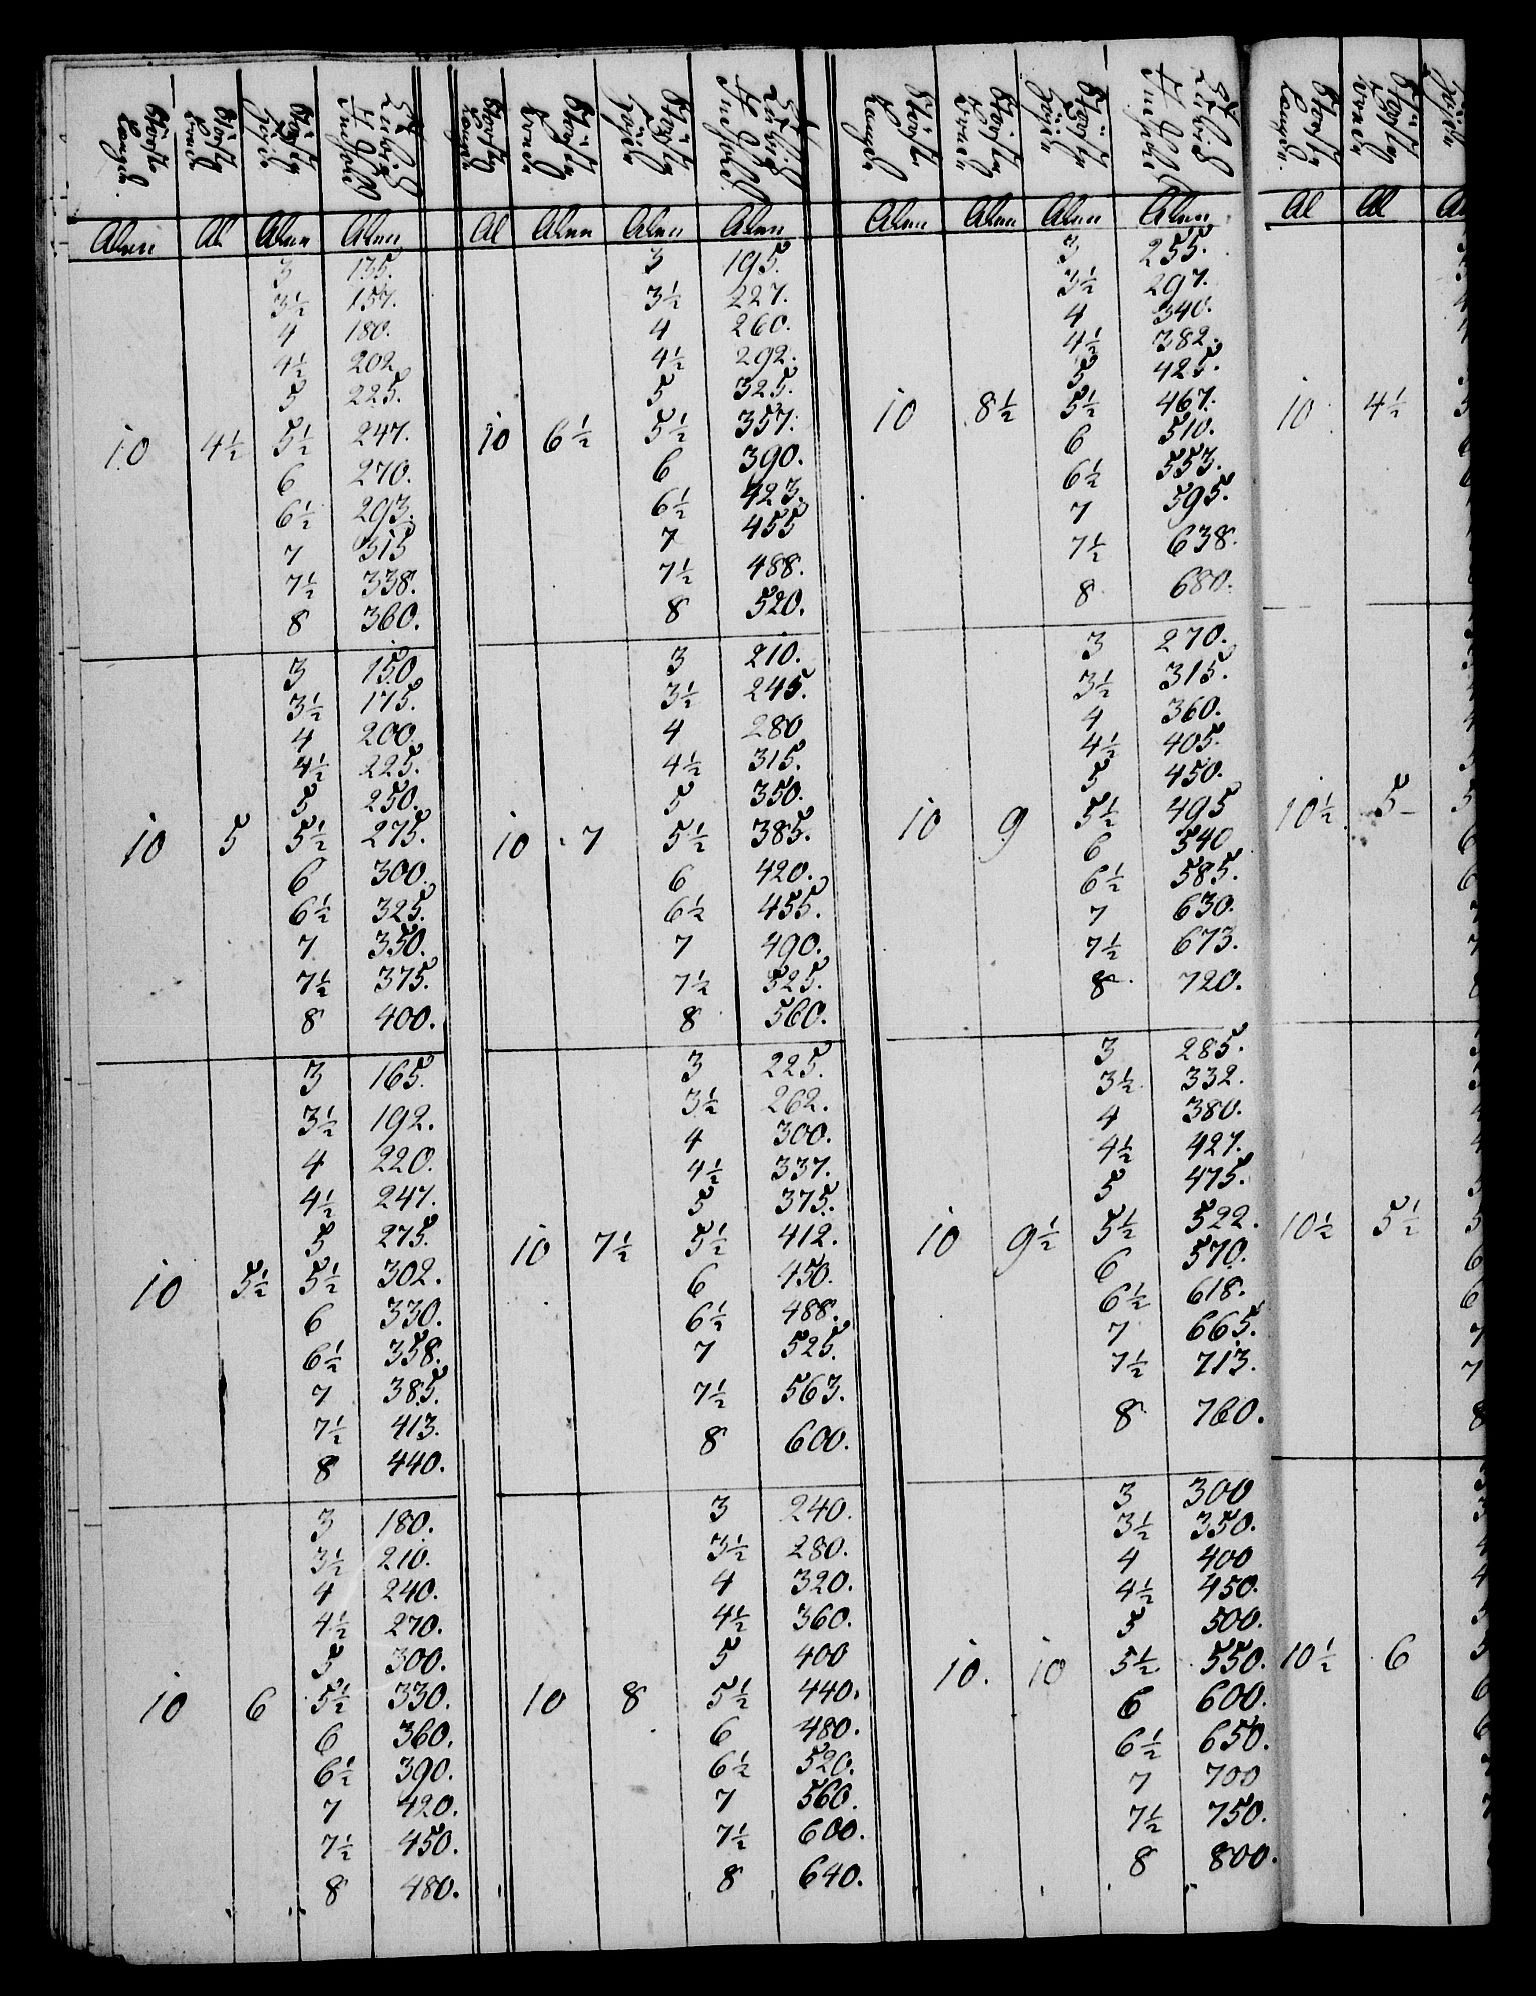 Alen Al Alen Alen
3 135.
3½ 157.
4 180.
4½ 202
5 225.
10 4½ 5½ 247.
6 270.
6½ 293.
7 315
7½ 338.
8 360.
3 150
3½ 175.
4 200
4½ 225.
5 250.
10 5 5½ 275.
6 300.
6½ 325.
7 350.
7½ 375.
8 400.
3 165.
3½ 192.
4 220.
4½ 247.
5 275.
10 5½ 5½ 302.
6 330.
6½ 358.
7 385.
7½ 413.
8 440.
3 180.
3½ 210.
4 240.
4½ 270.
5 300.
10 6 5½ 330.
6 360.
6½ 390.
7 420.
7½ 450.
8 480.
Al Alen Alen Alen
3 195.
3½ 227.
4 260.
4½ 292.
5 325.
10 6½ 5½ 357.
6 390.
6½ 423.
7 455
7½ 488.
8 520.
3 210.
3½ 245.
4 280
4½ 315.
5 350.
10 7 5½ 385.
6 420.
6½ 455.
7 490.
7½ 525.
8 560.
3 225.
3½ 262.
4 300.
4½ 337.
5 375.
10 7½ 5½ 412.
6 450.
6½ 488.
7 525.
7½ 563.
8 600.
3 240.
3½ 280.
4 320.
4½ 360.
5 400
10 8 5½ 440.
6 480.
6½ 520.
7 560.
7½ 600.
8 640.
Alen Alen Alen Alen
3 255.
3½ 297.
4 340.
4½ 382.
5 425.
10 8½ 5½ 467.
6 510.
6½ 553.
7 595.
7½ 638.
8 680.
3 270.
3½ 315.
4 360.
4½ 405.
5 450.
10 9 5½ 495
6 540
6½ 585.
7 630.
7½ 673.
8 720.
3 285.
3½ 332.
4 380.
4½ 427.
5 475.
10 9½ 5½ 522.
6 570.
6½ 618.
7 665.
7½ 713.
8 760.
3 300
3½ 350.
4 400
4½ 450.
5 500.
10. 10 5½ 550.
6 600.
6½ 650.
7 700
7½ 750.
8 800.
Al Al
10 4½
10½ 5
10½ 5½
10½ 6